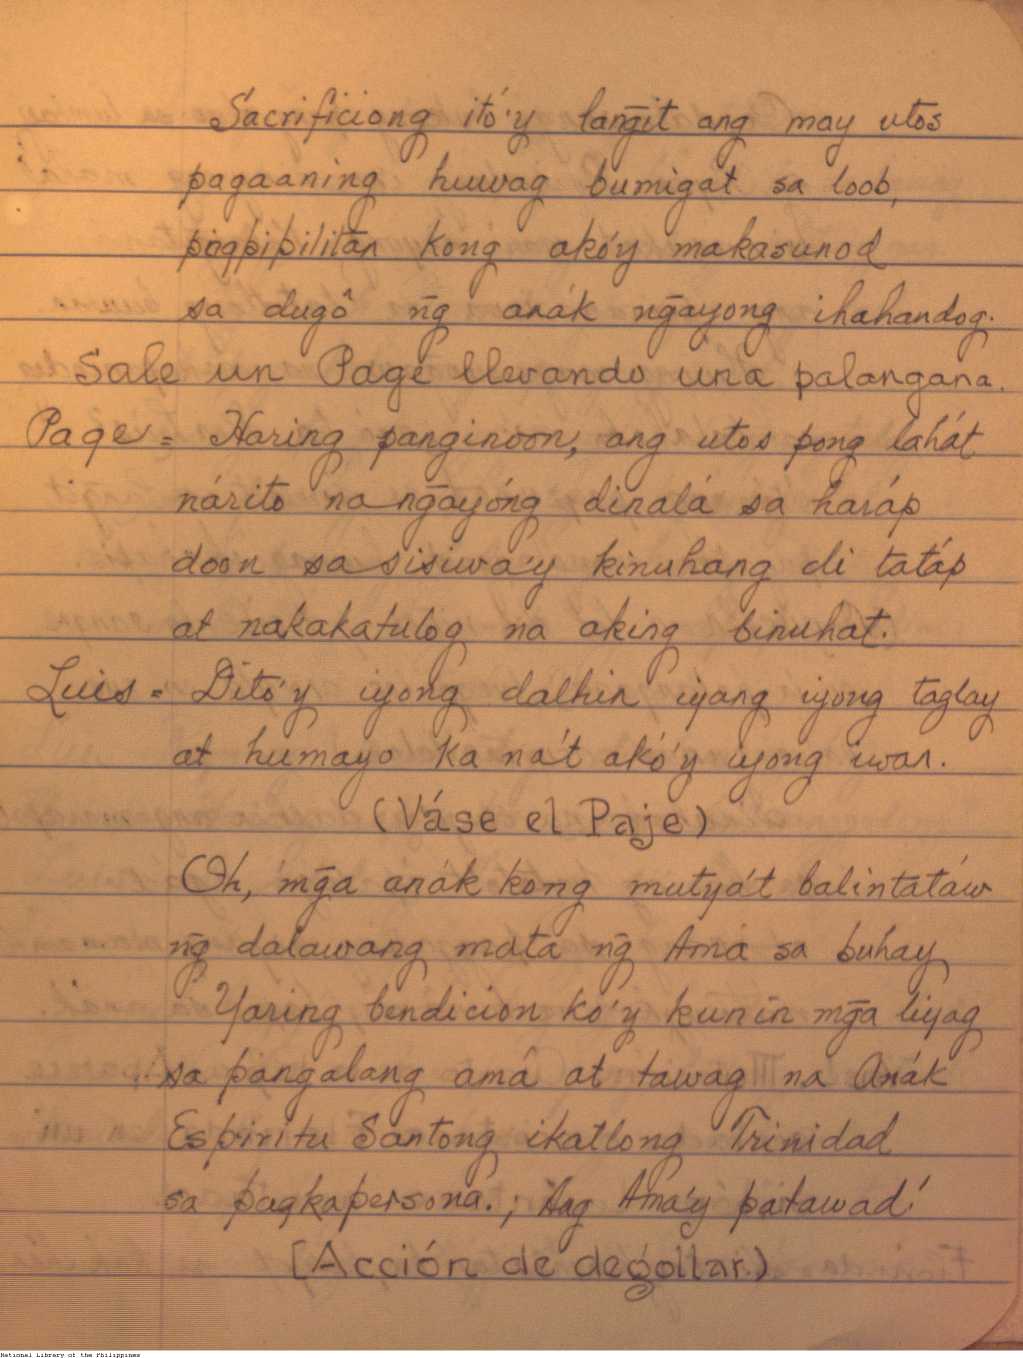 Sacrificiong itó'y lan̄git ang may utos
pagaaning huwag bumigat sa loob,
pagpipilitan kong akó'y makasunod
sa dugô n̄g anák n̄gayong ihahandog.
Sale un Page llevando una palangana.
Page = Haring panginoon, ang utos pong lahát
nárito na n̄gayóng dinalá sa haráp
doon sa sisiwa'y kinuhang di tatáp
at nakakatulog na aking binuhat.
Luis = Dito'y iyong dalhin iyang iyong taglay
at humayo ka na't akó'y iyong iwan.
(Váse el Paje)
Oh, mḡa anák kong mutya't balintatáw
n̄g dalawang mata n̄g Amá sa buhay
Yaring bendicion ko'y kunin mḡa liyag
sa pangalang amâ at tawag na Anák
Espiritu Santong ikatlong Trinidad
sa pagkapersona.; Ang Ama'y patawad!
(Acción de degollar.)
National Library of the Philippines